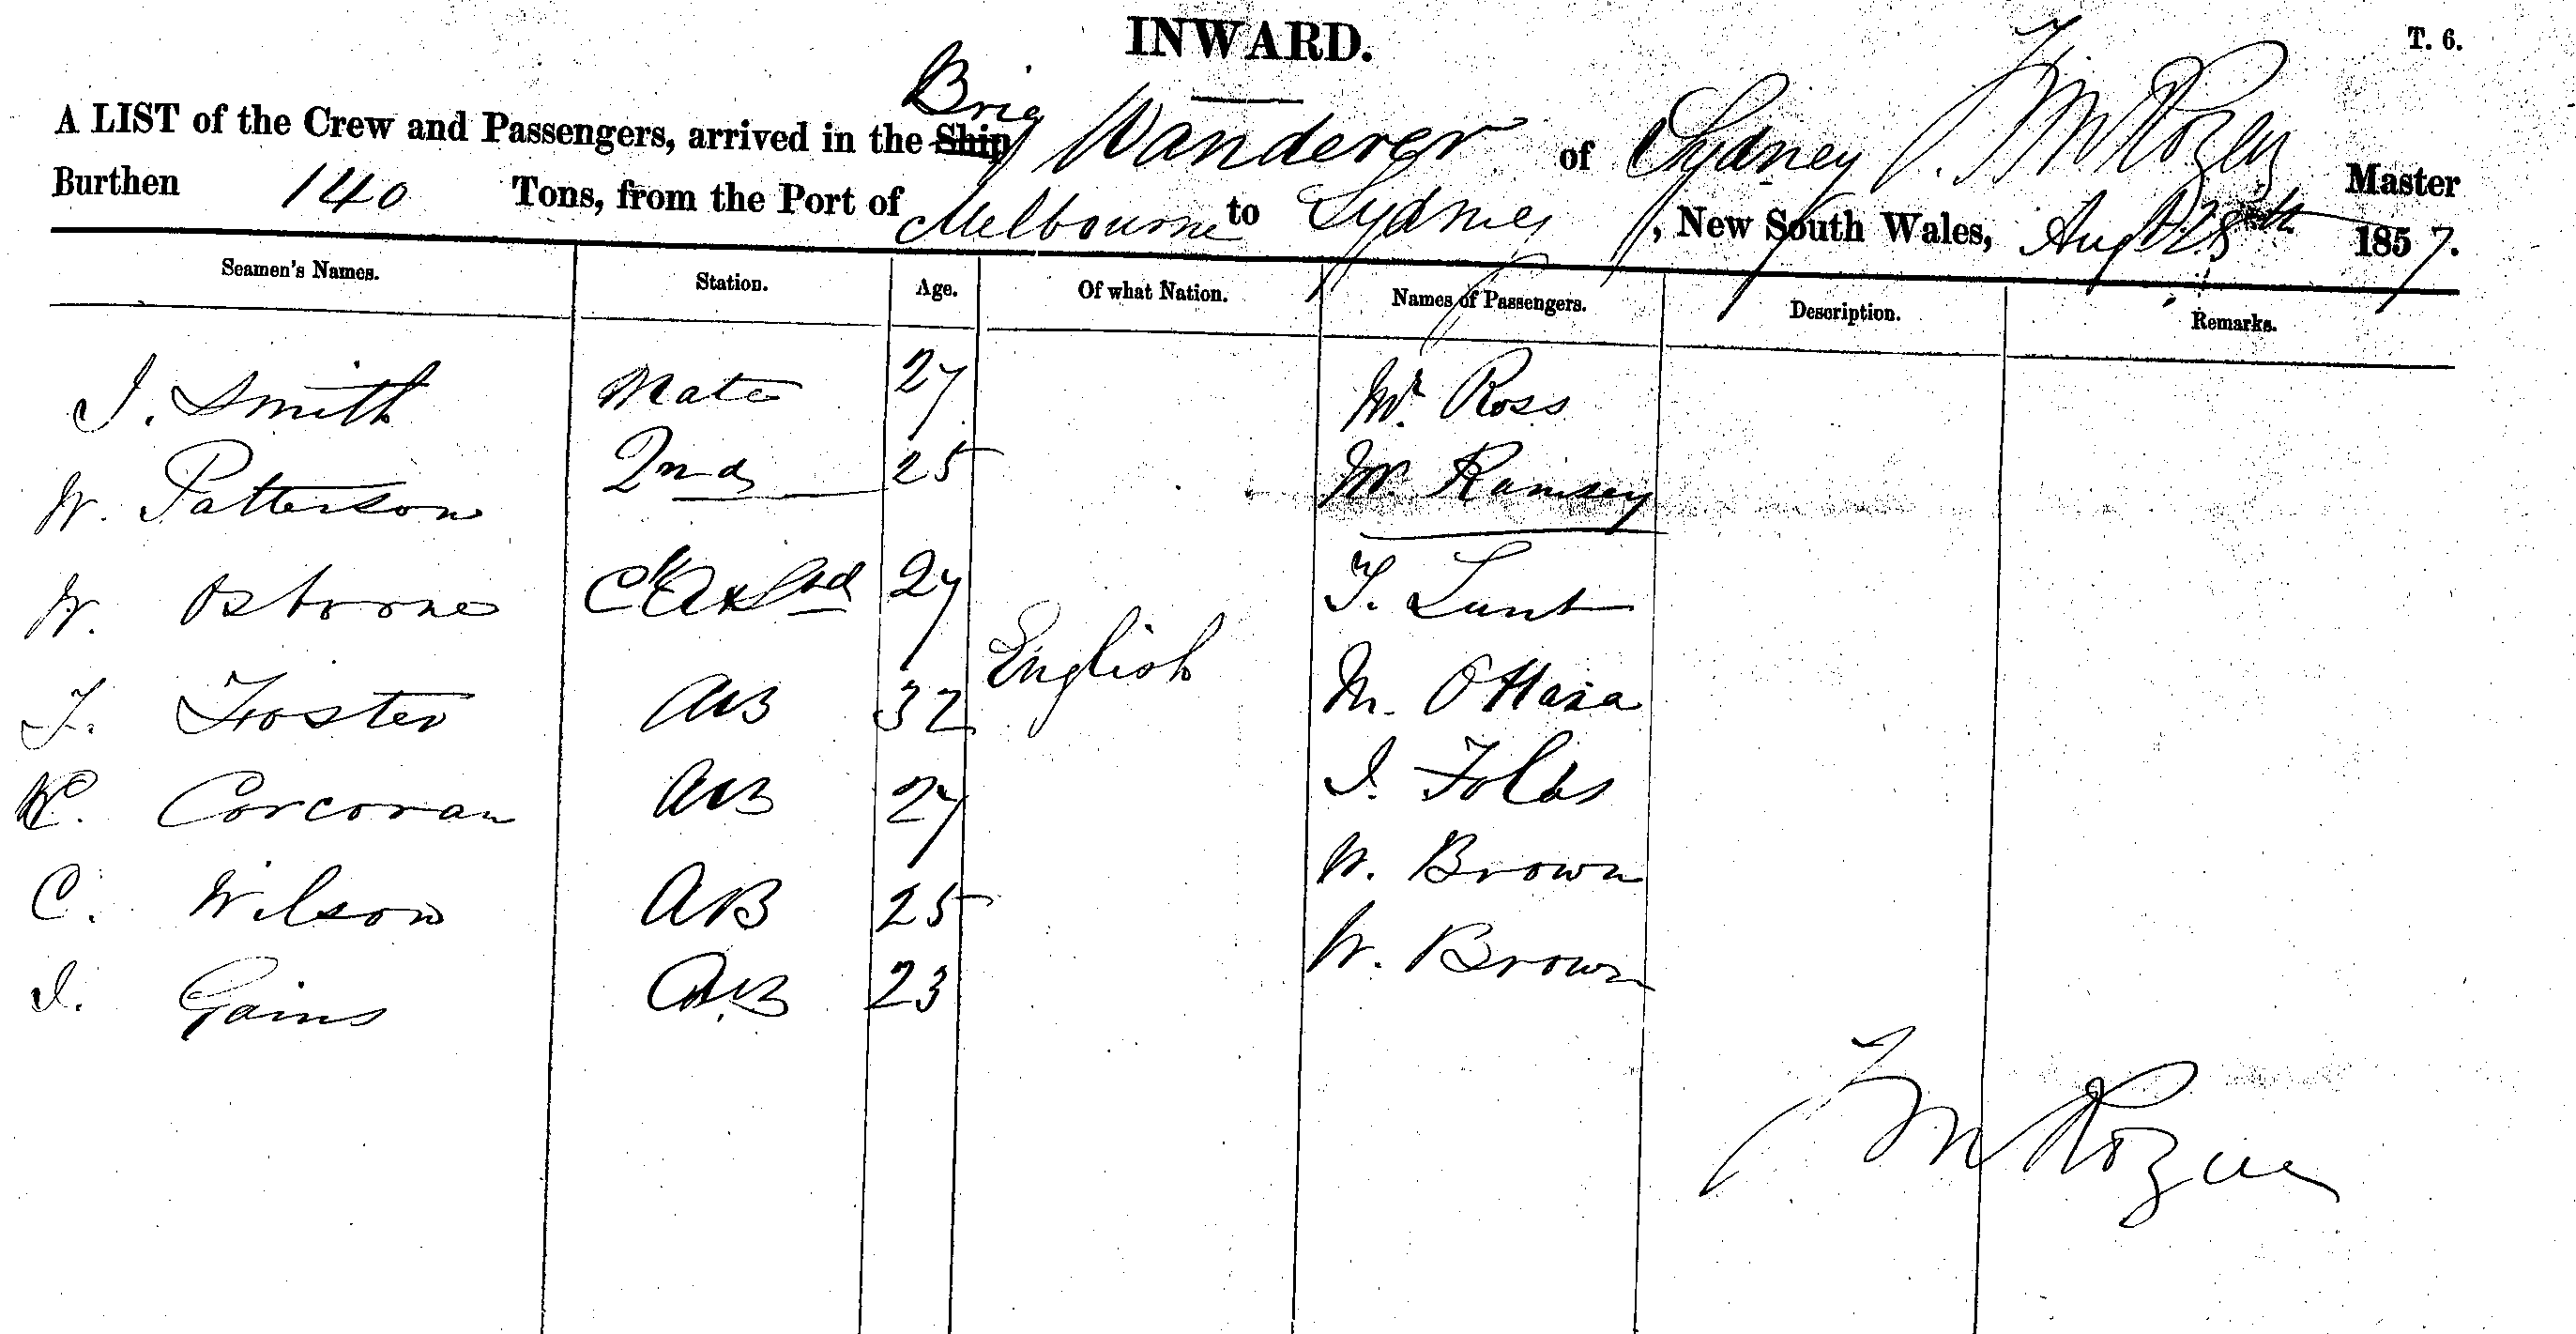 INWARD.
T. 6.
A LIST of the Crew and Passengers, arrived in the Ship Brig Wanderer of Sydney Master
Burthen 140 Tons, from the Port of Melbourne to Sydney, New South Wales, Augt 28th 1857.
Seamen's Names. Station. Age. Of what Nation. Names of Passengers. Description. Remarks.
J. Smith Mate 27 Mr. Ross
W. Patterson 2nd 25 Mr. Ramsey
W. Osborne 27 T. Lunt
T. Froster AB 32 English M. OHara
C. Corcoran AB 27 J. Folds
C. Wilson AB 25 W. Brown
J. Gains AB 23 W. Brown